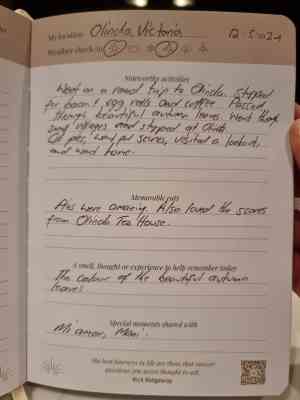 My location: Olinda, Victoria 12.5.2024
Weather check-in:
Noteworthy activities
Went on a road trip to Olinda. Stopped
for bacon & egg rolls and coffee. Passed
through beautiful autumn leaves. Went through
villages and stopped at
pies, scones, visited a lookout
and went home.
Memorable eats
Pies were amazing. Also loved the scones
from Olinda Tea House.
A smell, thought or experience to help remember today
The colour of the beautiful autumn
leaves!
Special moments shared with
Mi amor, Mani.
The best journeys in life are those that answer
questions you never thought to ask.
Rick Ridgeway